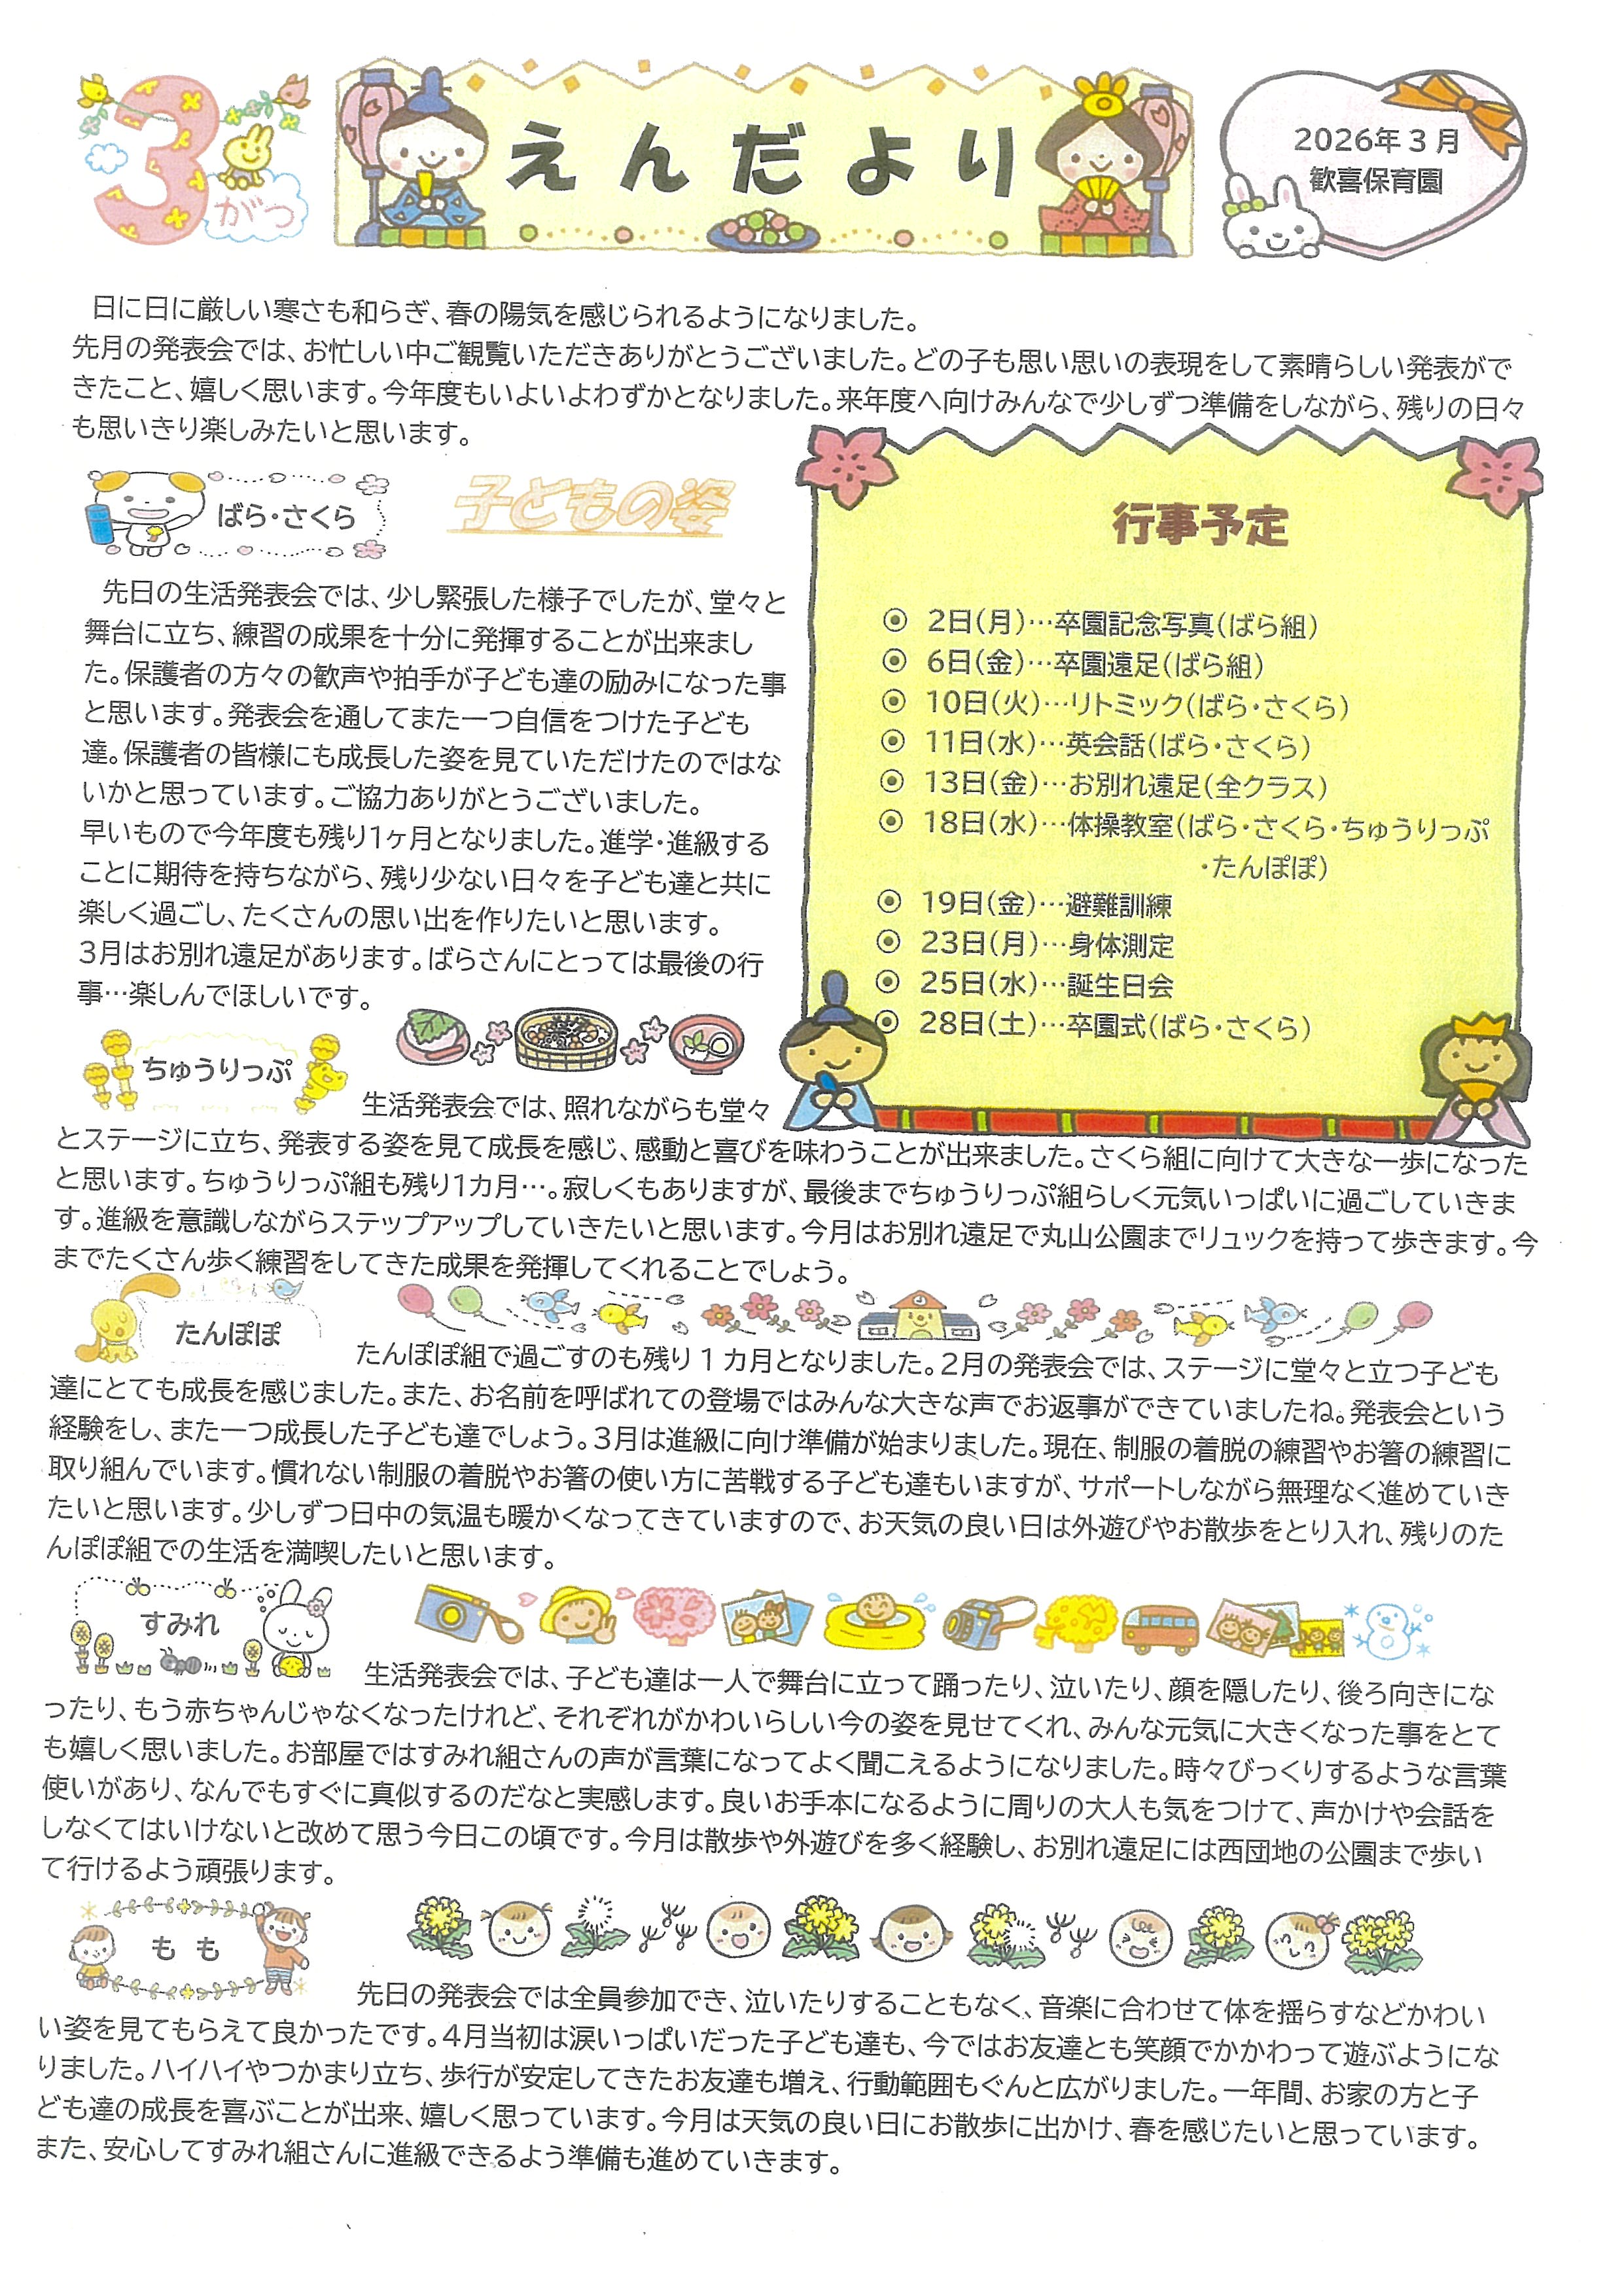 3
がつ
えんだより
2026年3月
歓喜保育園
日に日に厳しい寒さも和らぎ、春の陽気を感じられるようになりました。
先月の発表会では、お忙しい中ご観覧いただきありがとうございました。どの子も思い思いの表現をして素晴らしい発表がで
きたこと、嬉しく思います。今年度もいよいよわずかとなりました。来年度へ向けみんなで少しずつ準備をしながら、残りの日々
も思いきり楽しみたいと思います。
子どもの姿
ばら・さくら
先日の生活発表会では、少し緊張した様子でしたが、堂々と
舞台に立ち、練習の成果を十分に発揮することが出来まし
た。保護者の方々の歓声や拍手が子ども達の励みになった事
と思います。発表会を通してまた一つ自信をつけた子ども
達。保護者の皆様にも成長した姿を見ていただけたのではな
いかと思っています。ご協力ありがとうございました。
早いもので今年度も残り1ヶ月となりました。進学・進級する
ことに期待を持ちながら、残り少ない日々を子ども達と共に
楽しく過ごし、たくさんの思い出を作りたいと思います。
3月はお別れ遠足があります。ばらさんにとっては最後の行
事…楽しんでほしいです。
行事予定
◉ 2日(月)…卒園記念写真(ばら組)
◉ 6日(金)…卒園遠足(ばら組)
◉ 10日(火)…リトミック(ばら・さくら)
◉ 11日(水)…英会話(ばら・さくら)
◉ 13日(金)…お別れ遠足(全クラス)
◉ 18日(水)…体操教室(ばら・さくら・ちゅうりっぷ
・たんぽぽ)
◉ 19日(金)…避難訓練
◉ 23日(月)…身体測定
◉ 25日(水)…誕生日会
◉ 28日(土)…卒園式(ばら・さくら)
ちゅうりっぷ
生活発表会では、照れながらも堂々
とステージに立ち、発表する姿を見て成長を感じ、感動と喜びを味わうことが出来ました。さくら組に向けて大きな一歩になった
と思います。ちゅうりっぷ組も残り1カ月…。寂しくもありますが、最後までちゅうりっぷ組らしく元気いっぱいに過ごしていきま
す。進級を意識しながらステップアップしていきたいと思います。今月はお別れ遠足で丸山公園までリュックを持って歩きます。今
までたくさん歩く練習をしてきた成果を発揮してくれることでしょう。
たんぽぽ
たんぽぽ組で過ごすのも残り1カ月となりました。2月の発表会では、ステージに堂々と立つ子ども
達にとても成長を感じました。また、お名前を呼ばれての登場ではみんな大きな声でお返事ができていましたね。発表会という
経験をし、また一つ成長した子ども達でしょう。3月は進級に向け準備が始まりました。現在、制服の着脱の練習やお箸の練習に
取り組んでいます。慣れない制服の着脱やお箸の使い方に苦戦する子ども達もいますが、サポートしながら無理なく進めていき
たいと思います。少しずつ日中の気温も暖かくなってきていますので、お天気の良い日は外遊びやお散歩をとり入れ、残りのた
んぽぽ組での生活を満喫したいと思います。
すみれ
生活発表会では、子ども達は一人で舞台に立って踊ったり、泣いたり、顔を隠したり、後ろ向きにな
ったり、もう赤ちゃんじゃなくなったけれど、それぞれがかわいらしい今の姿を見せてくれ、みんな元気に大きくなった事をとて
も嬉しく思いました。お部屋ではすみれ組さんの声が言葉になってよく聞こえるようになりました。時々びっくりするような言葉
使いがあり、なんでもすぐに真似するのだなと実感します。良いお手本になるように周りの大人も気をつけて、声かけや会話を
しなくてはいけないと改めて思う今日この頃です。今月は散歩や外遊びを多く経験し、お別れ遠足には西団地の公園まで歩い
て行けるよう頑張ります。
もも
先日の発表会では全員参加でき、泣いたりすることもなく、音楽に合わせて体を揺らすなどかわい
い姿を見てもらえて良かったです。4月当初は涙いっぱいだった子ども達も、今ではお友達とも笑顔でかかわって遊ぶようにな
りました。ハイハイやつかまり立ち、歩行が安定してきたお友達も増え、行動範囲もぐんと広がりました。一年間、お家の方と子
ども達の成長を喜ぶことが出来、嬉しく思っています。今月は天気の良い日にお散歩に出かけ、春を感じたいと思っています。
また、安心してすみれ組さんに進級できるよう準備も進めていきます。